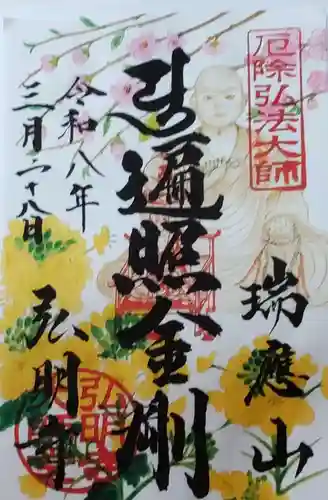 厄除弘法大師
瑞應山
遍照金剛
令和八年
三月二十八日
弘明寺